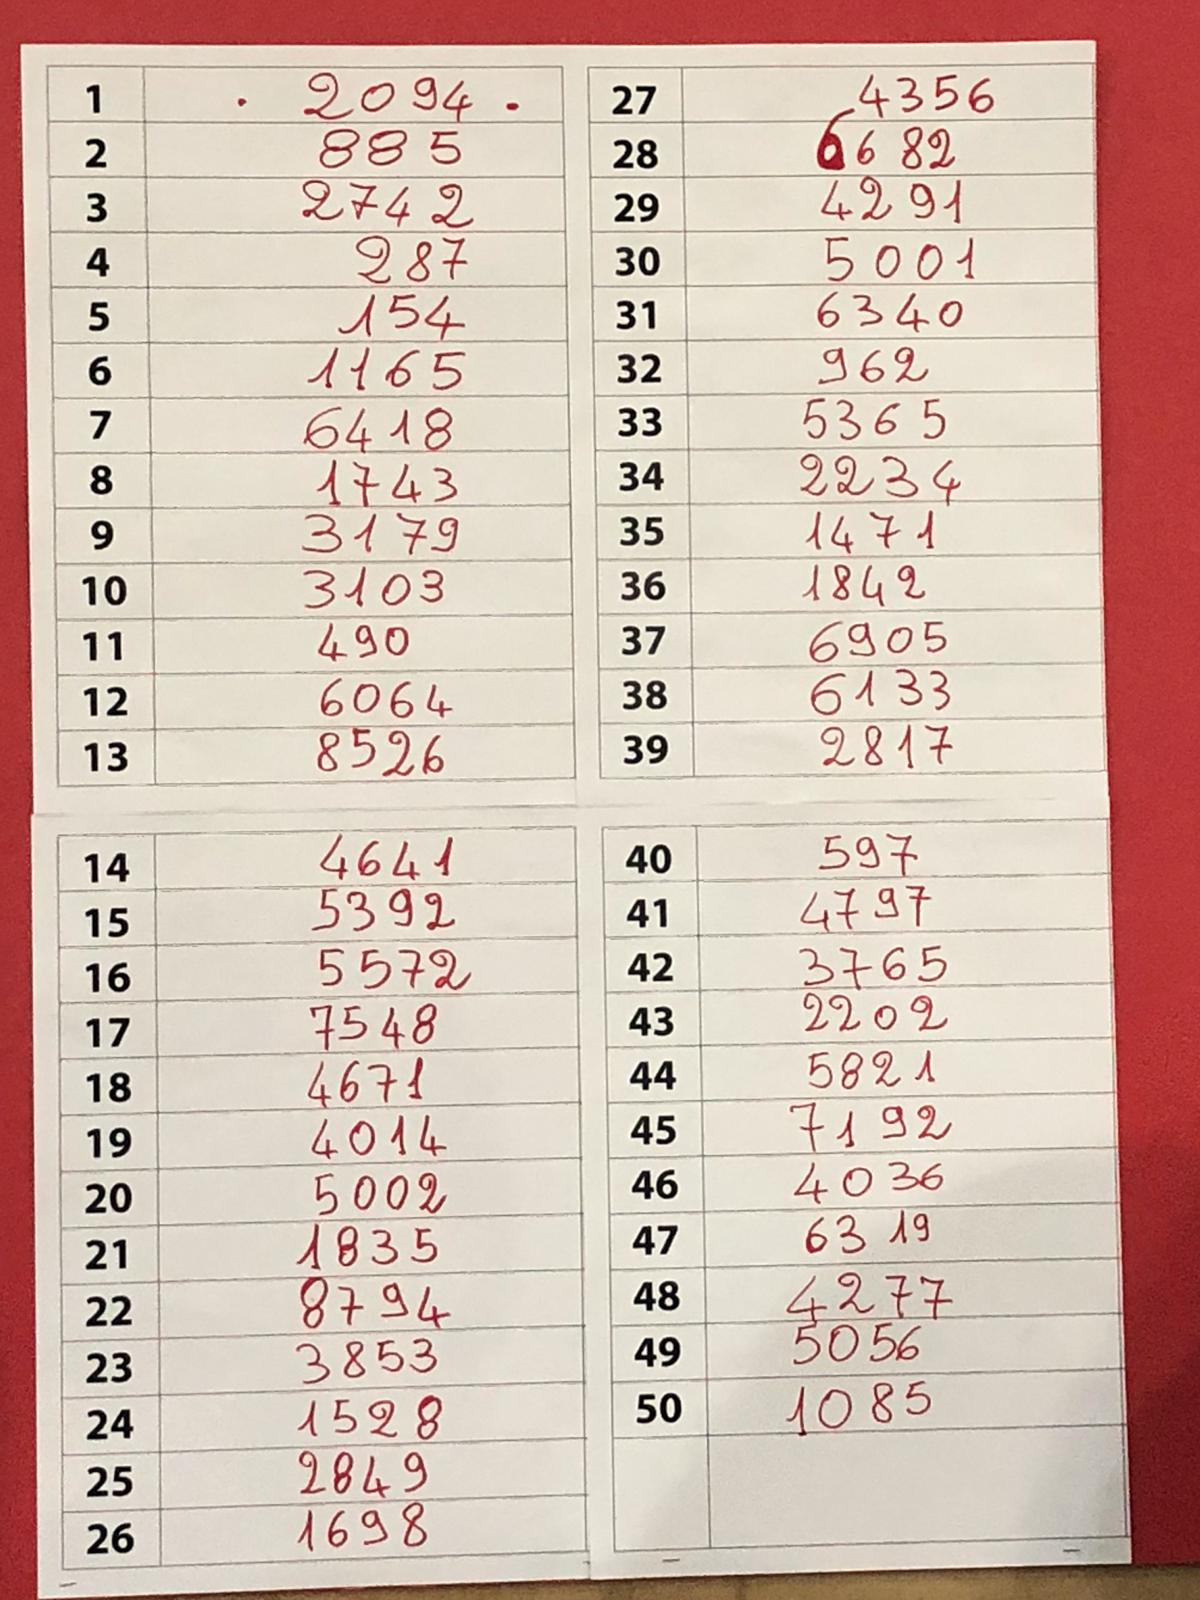 1 2094
2 885
3 2742
4 287
5 154
6 1165
7 6418
8 1743
9 3179
10 3103
11 490
12 6064
13 8526
14 4641
15 5392
16 5572
17 7548
18 4671
19 4014
20 5002
21 1835
22 8794
23 3853
24 1528
25 2849
26 1698
27 4356
28 6682
29 4291
30 5001
31 6340
32 962
33 5365
34 2234
35 1471
36 1842
37 6905
38 6133
39 2817
40 597
41 4797
42 3765
43 2202
44 5821
45 7192
46 4036
47 6319
48 4277
49 5056
50 1085